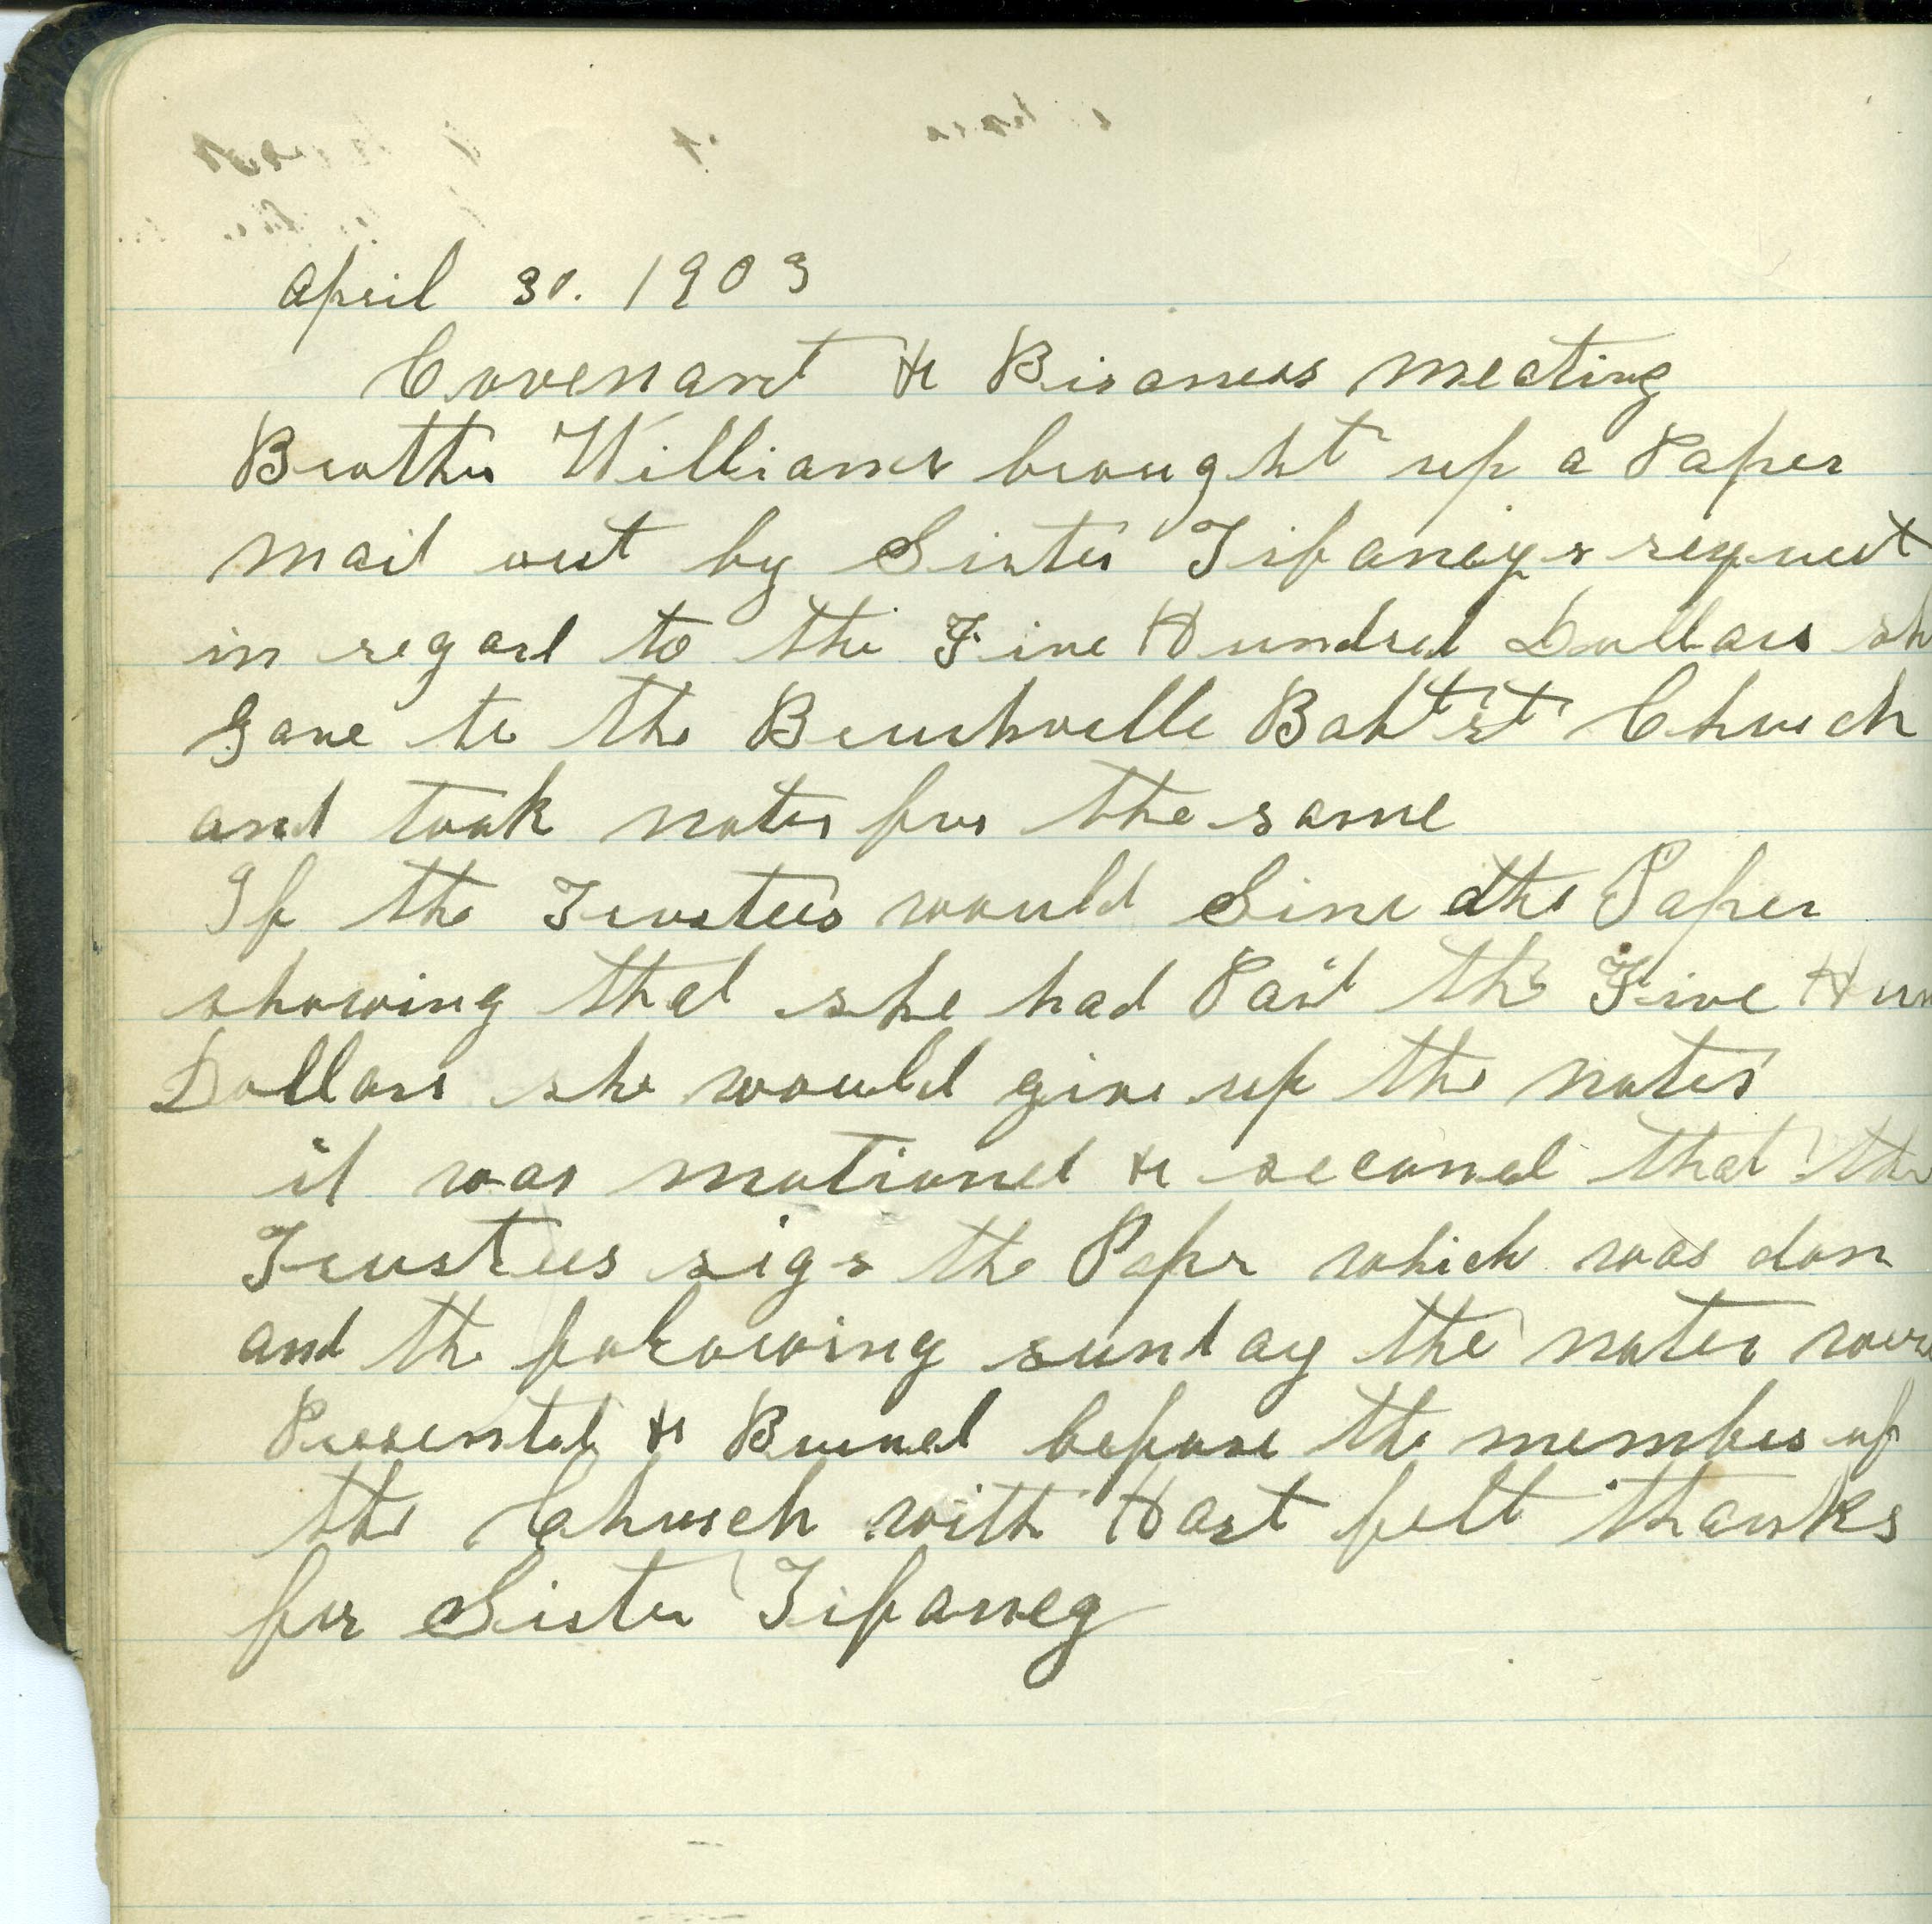 April 30. 1903
Covenant & Bisaness meating
Brother Williams brought up a Paper
mad out by Sister Tifaneys request
in regard to the Five Hundred Dollars sh
Gave to the Burchville Babtist Church
and took notes for the same
If the Trustees would Sine the Paper
showing that she had Paid the Five Hun
Dollars she would give up the notes
it was motioned & seconed that the
Trustees sign the Papr which was don
and the folowing sunday the notes were
Presented & Burned before the members of
the Church with Hart felt thanks
for Sister Tifaney